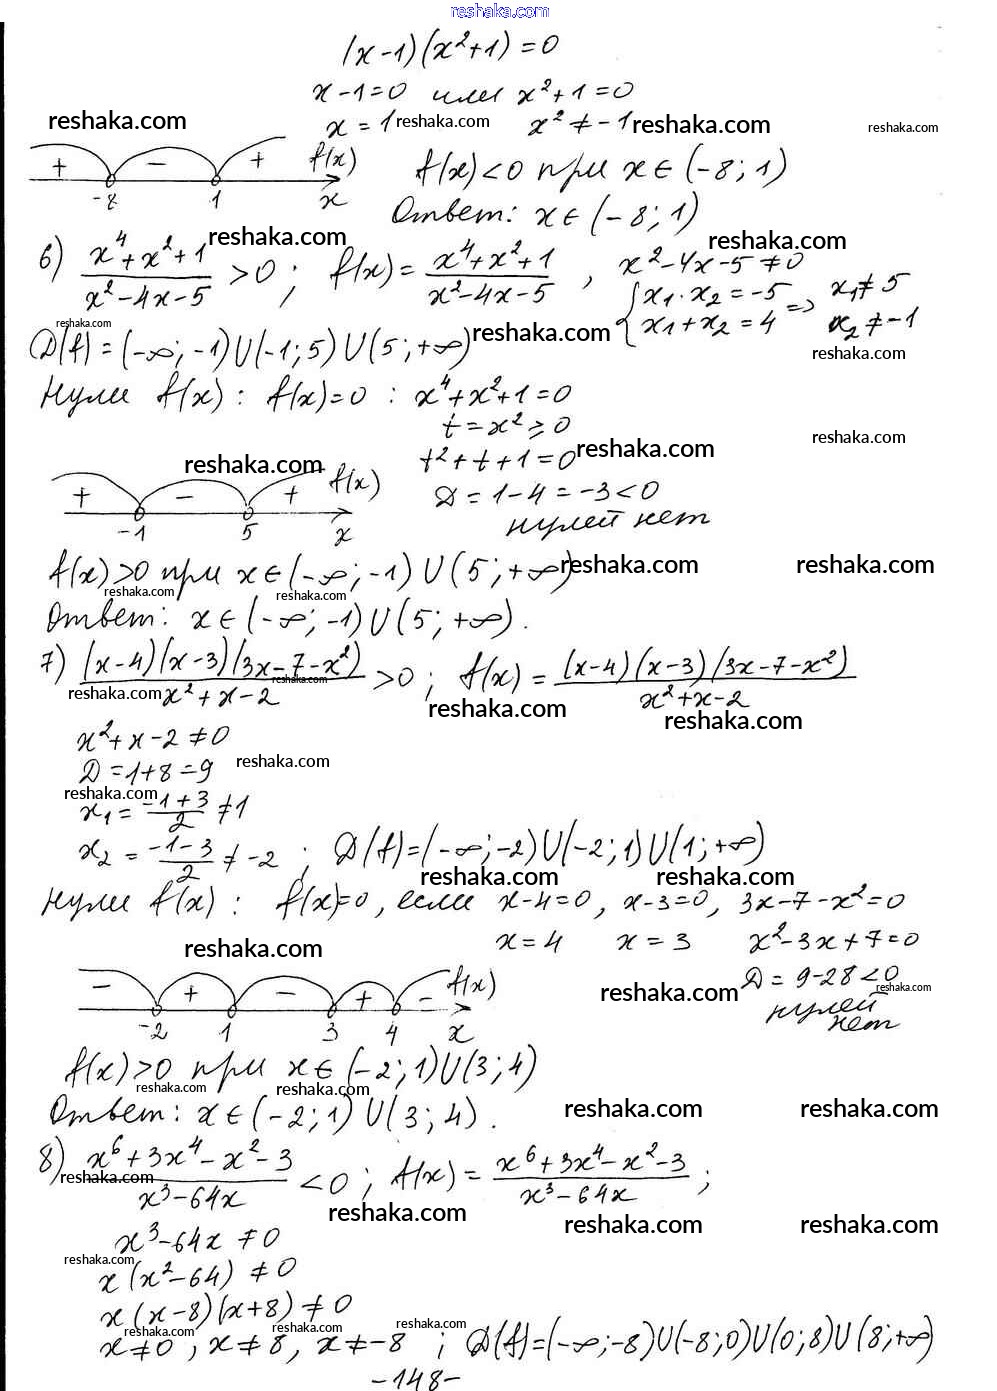 reshaka.com
(x-1)(x²+1)=0
x-1=0 или x²+1=0
reshaka.com x = 1 reshaka.com x² ≠ -1 reshaka.com reshaka.com
+ - + f(x) f(x)<0 при x∈(-8; 1)
-8 1 x
Ответ: x∈(-8; 1)
6) x⁴+x²+1 / x²-4x-5 >0; f(x) = x⁴+x²+1 / x²-4x-5 , x²-4x-5≠0
reshaka.com reshaka.com
{ x₁·x₂=-5 => x₁≠5
x₁+x₂=4 x₂≠-1
reshaka.com reshaka.com reshaka.com
D(f)=(-∞;-1)U(-1;5)U(5;+∞)
Нули f(x): f(x)=0 : x⁴+x²+1=0
t=x²≥0
reshaka.com reshaka.com reshaka.com
t²+t+1=0
+ - + f(x) D=1-4=-3<0
-1 5 x нулей нет
f(x)>0 при x∈(-∞;-1)U(5;+∞)
reshaka.com reshaka.com reshaka.com reshaka.com
Ответ: x∈(-∞;-1)U(5;+∞).
7) (x-4)(x-3)(3x-7-x²) / x²+x-2 >0; f(x) = (x-4)(x-3)(3x-7-x²) / x²+x-2
reshaka.com reshaka.com reshaka.com reshaka.com
x²+x-2≠0
D=1+8=9 reshaka.com
reshaka.com
x₁ = -1+3 / 2 ≠1
x₂ = -1-3 / 2 ≠ -2 ; D(f)=(-∞;-2)U(-2;1)U(1;+∞)
reshaka.com reshaka.com
Нули f(x): f(x)=0, если x-4=0, x-3=0, 3x-7-x²=0
reshaka.com x=4 x=3 x²-3x+7=0
- + - + - f(x) reshaka.com D=9-28<0 reshaka.com
-2 1 3 4 x нулей
нет
f(x)>0 при x∈(-2;1)U(3;4)
reshaka.com reshaka.com reshaka.com reshaka.com
Ответ: x∈(-2;1)U(3;4).
8) x⁶+3x⁴-x²-3 / x³-64x <0; f(x) = x⁶+3x⁴-x²-3 / x³-64x ;
reshaka.com reshaka.com reshaka.com reshaka.com
x³-64x≠0
reshaka.com
x(x²-64)≠0
x(x-8)(x+8)≠0
reshaka.com reshaka.com reshaka.com
x≠0, x≠8, x≠-8 ; D(f)=(-∞;-8)U(-8;0)U(0;8)U(8;+∞)
-148-